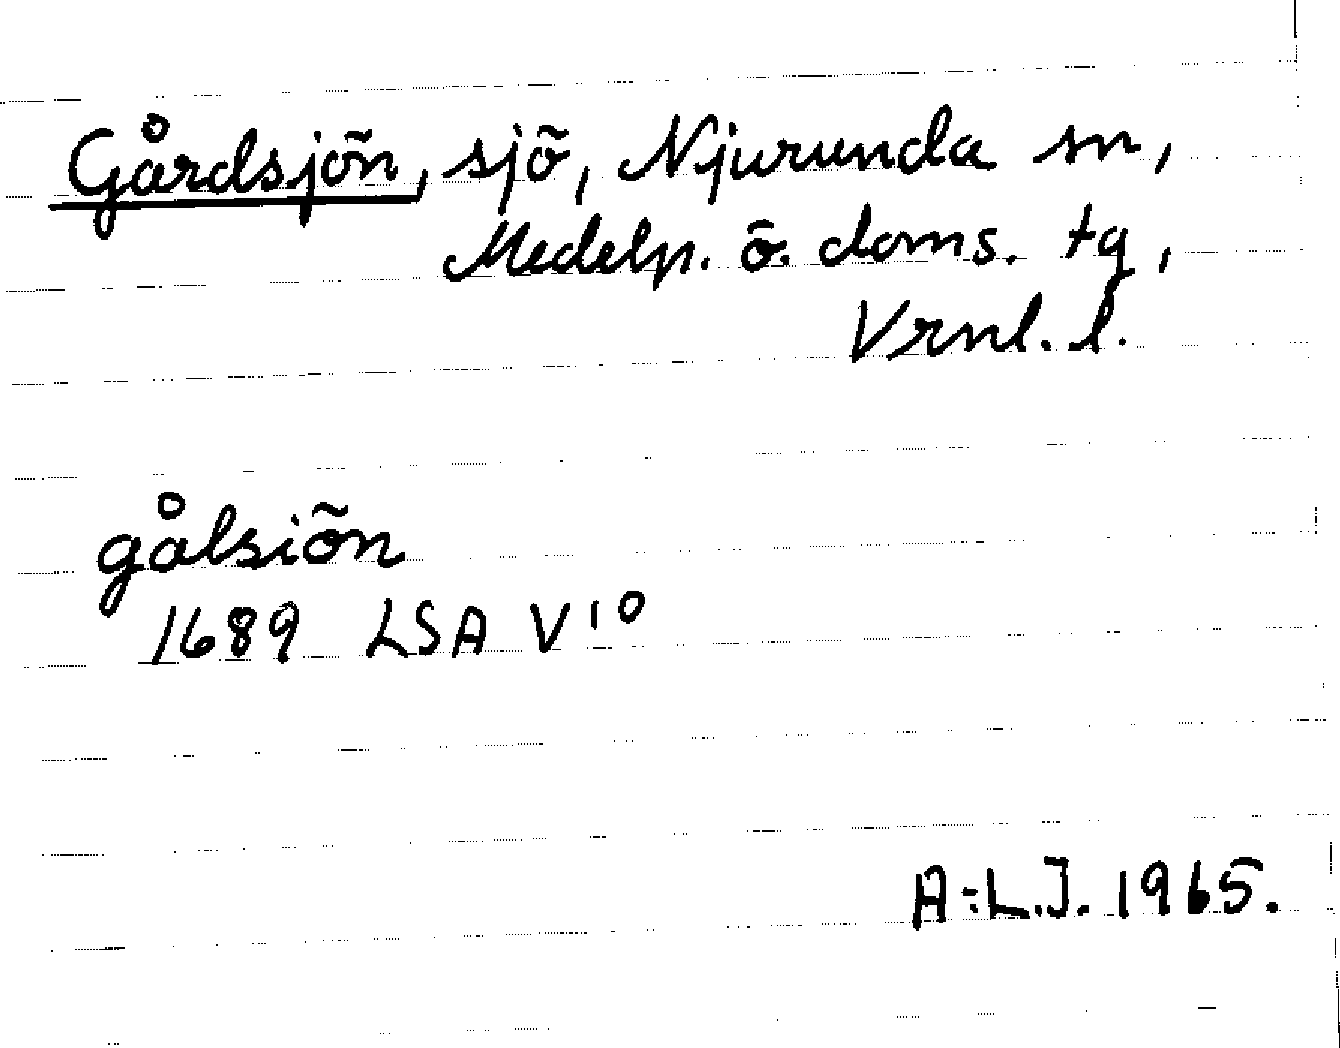 Gårdsjön, sjö, Njurunda sn,
Medelp. ö. doms. tg,
Vrnl. l.
gålsiön
1689 LSA V 10
A:L.J. 1965.